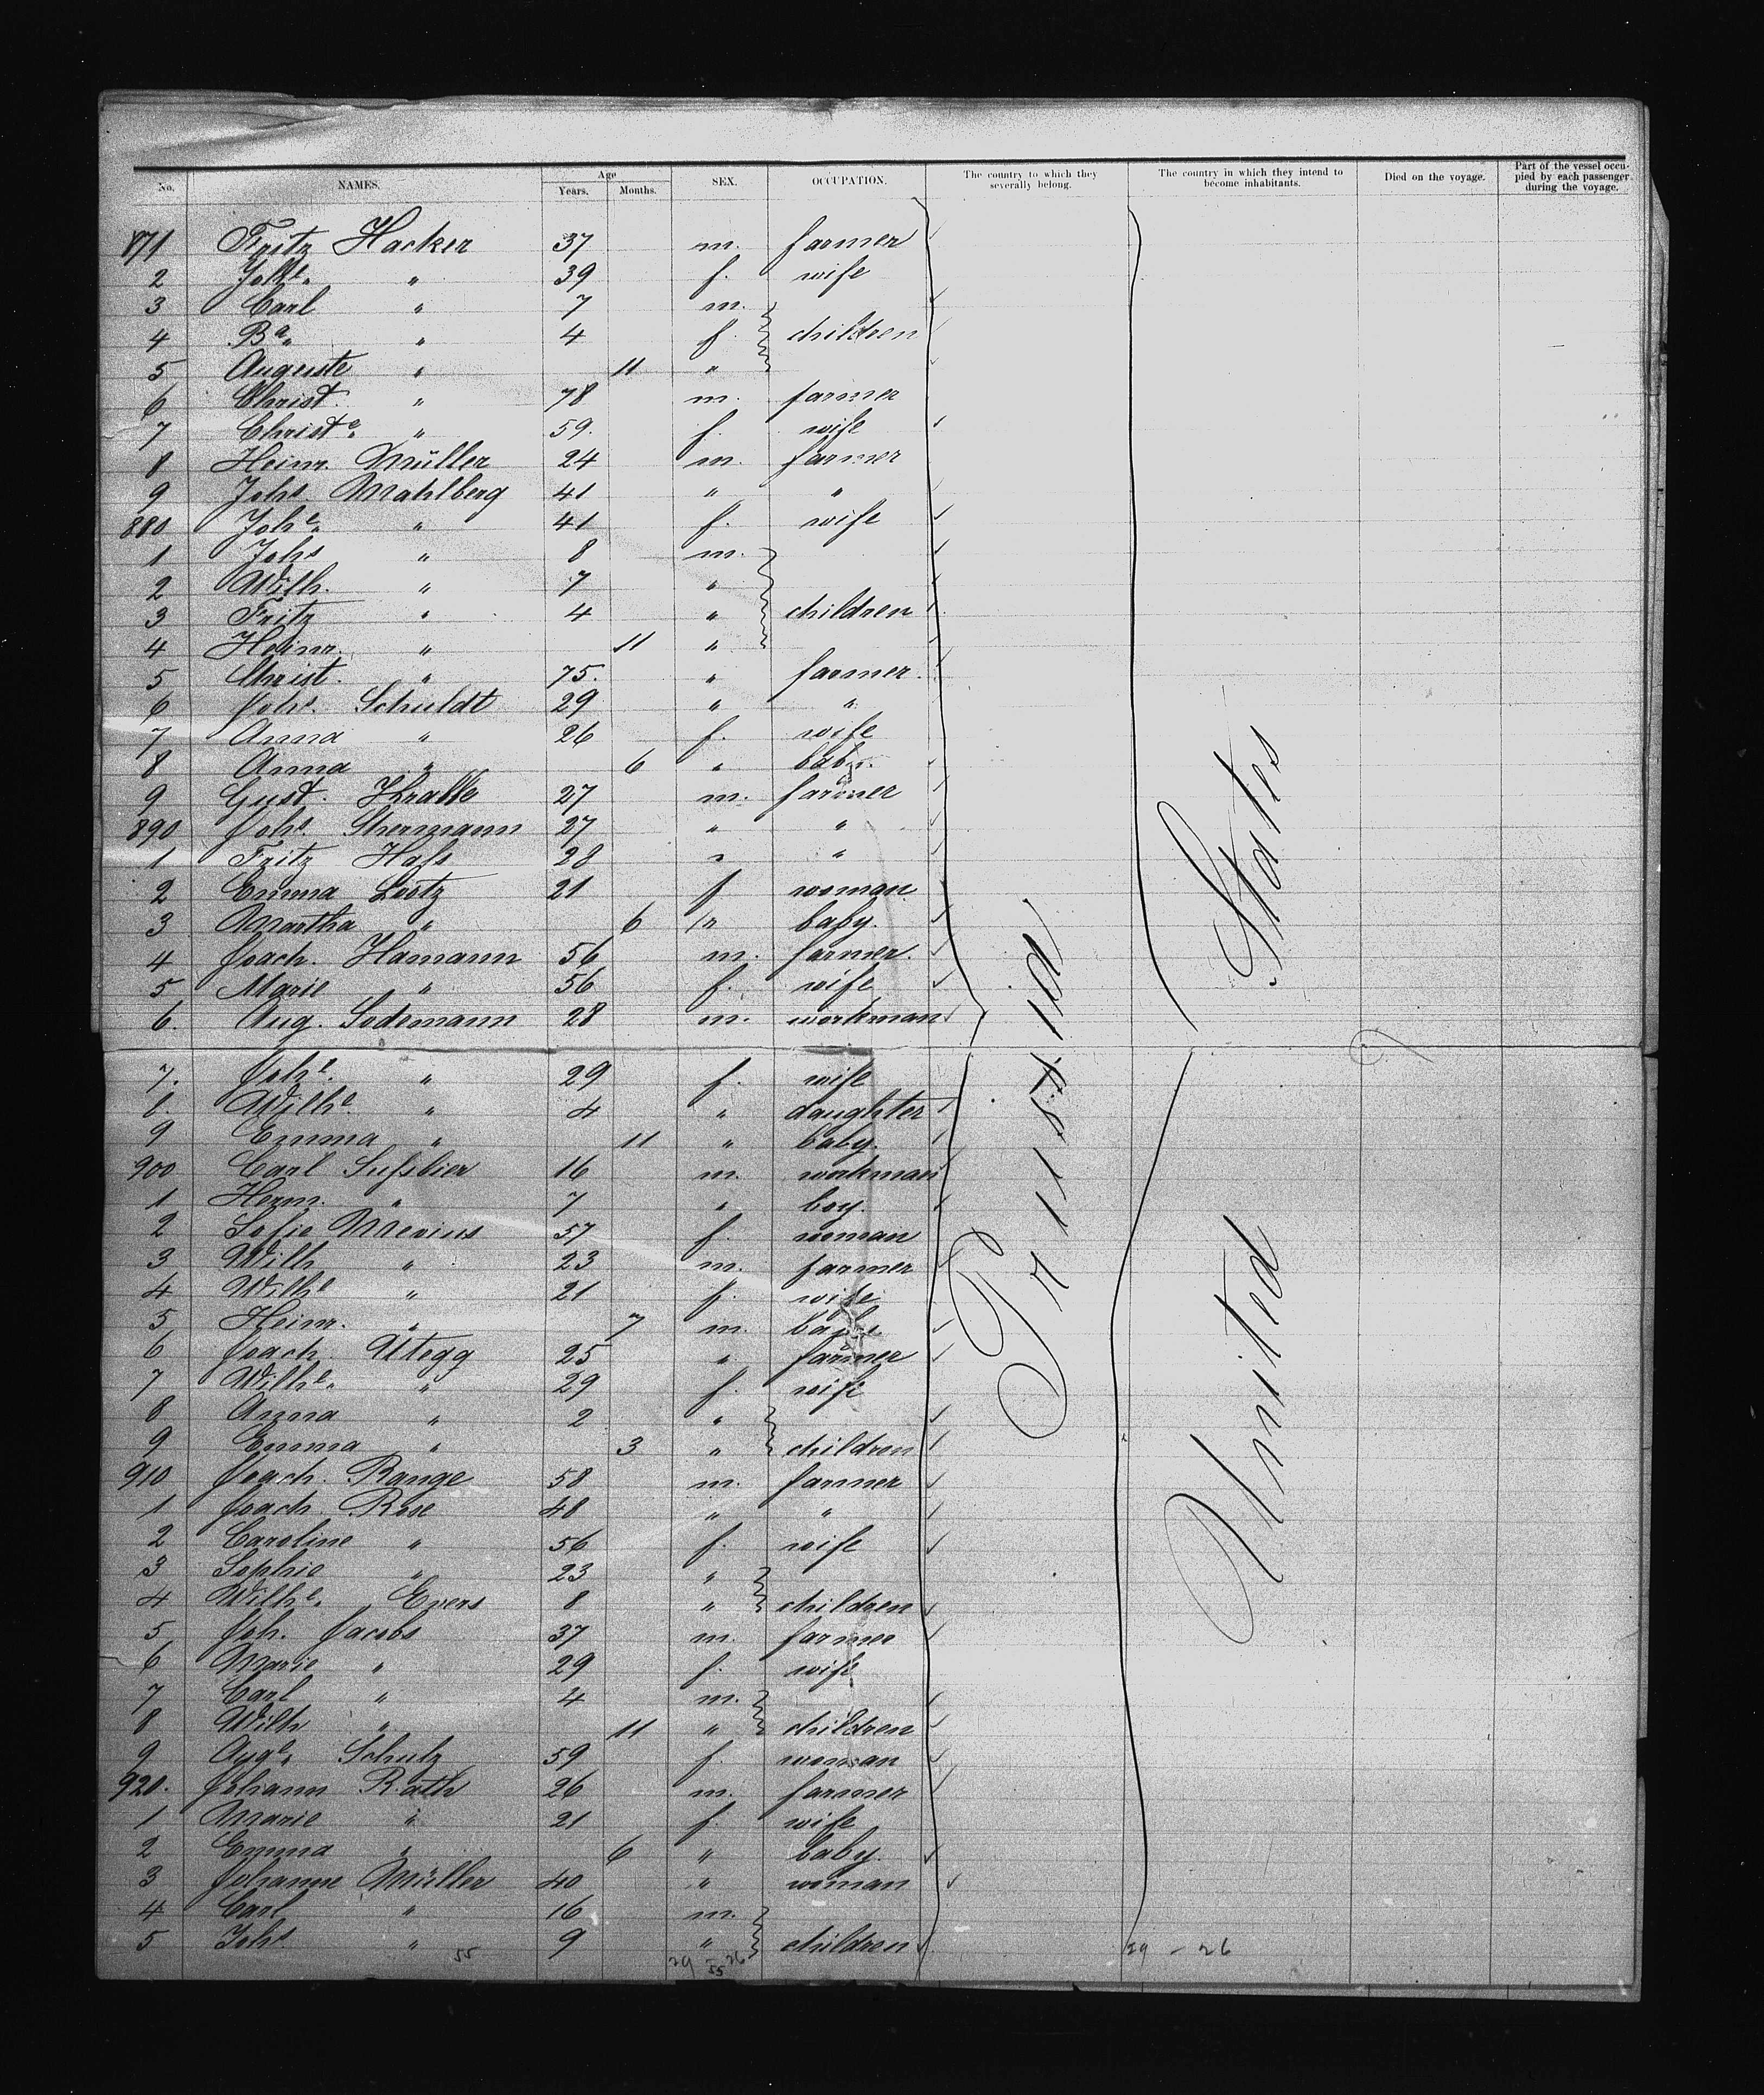 No. NAMES. Age Years. Months. SEX. OCCUPATION. The country to which they severally belong. The country in which they intend to become inhabitants. Died on the voyage. Part of the vessel occupied by each passenger during the voyage.
871 Fritz Hacker 37 m. farmer
2 Johe. " 39 f. wife
3 Carl " 7 m.
4 Ba. " 4 f. children
5 Auguste " 11 "
6 Christ. " 78 m. farmer
7 Christe. " 59. f. wife
8 Heinr. Müller 24 m. farmer
9 Johs. Mahlberg 41 " "
880 Johe. " 41 f. wife
1 Johs " 8 m.
2 Wilh. " 7 "
3 Fritz " 4 " children
4 Heinr. " 11 "
5 Christ. " 75. " farmer.
6 Johs. Schuldt 29 " "
7 Anna " 26 f. wife
8 Anna " 6 " baby.
9 Gust. 27 m. farmer
890 Johs. 27 " "
1 Fritz Hass 28 " "
2 Emma Lootz 21 f woman
3 Martha " 6 " baby.
4 Joach. Hamann 56 m. farmer.
5 Marie " 56 f. wife
6. Aug. Sodemann 28 m. workman
7. Johe. " 29 f. wife
8. Wilhe. " 4 " daughter
9 Emma " 11 " baby.
900 Carl Sussbier 16 m. workman
1 Herm. " 7 " boy.
2 Sofie Mevius 57 f. woman
3 Wilh " 23 m. farmer
4 Wilhe " 21 f. wife
5 Heinr. " 7 m. babe
6 Joach. 25 " farmer
7 Wilhe. " 29 f. wife
8 Anna " 2 "
9 Emma " 3 " children
910 Joach. Range 58 m. farmer
1 Joach. Rose 48 " "
2 Caroline " 56 f. wife
3 Sophie " 23 "
4 Wilhe. Evers 8 " children
5 Joh. Jacobs 37 m. farmer
6 Marie " 29 f. wife
7 Carl " 4 m.
8 Wilh " 11 " children
9 Auge. Schulz 59 f. woman
920. Johann Rath 26 m. farmer
1 Marie " 21 f. wife
2 Emma " 6 " baby.
3 Johanne Müller 40 " woman
4 Carl " 16 m.
5 Johs. " 9 " children
Prussia
United States
55 29 - 26 55 29 - 26